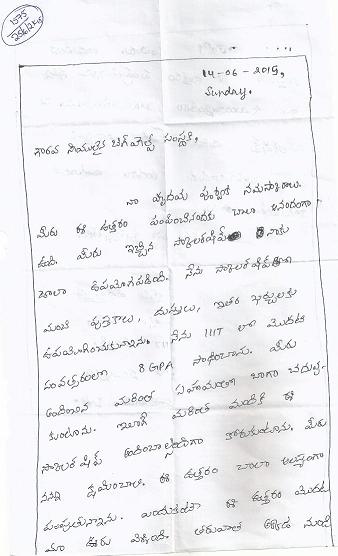 1575
14-06-2015,
Sunday.
గౌరవ నీయులైన సంస్థకి,
నా హృదయ పూర్వక నమస్కారాలు.
మీరు ఈ ఉత్తరం పంపించినందుకు చాలా ఆనందంగా
ఉంది. మీరు ఇచ్చిన స్కాలర్‌షిప్ నాకు
చాలా ఉపయోగపడింది. నేను స్కాలర్‌షిప్
మంచి పుస్తకాలు, దుస్తులు, ఇతర ఖర్చులకు
ఉపయోగించుకున్నాను. నేను IIIT లో మొదటి
సంవత్సరంలో 8 GPA సాధించాను. మీరు
అందించిన మరింత సహాయంతో బాగా చదువు-
కుంటాను. ఇలాగే మరింత మందికి ఈ
స్కాలర్‌షిప్ కోరుకుంటాను. మీరు
నన్ను క్షమించాలి. ఈ ఉత్తరం చాలా ఆలస్యంగా
పంపుతున్నాను. ఎందుకంటే ఈ ఉత్తరం మొదట
మా ఊరు వెళ్ళింది. తరువాత అక్కడ నుండి